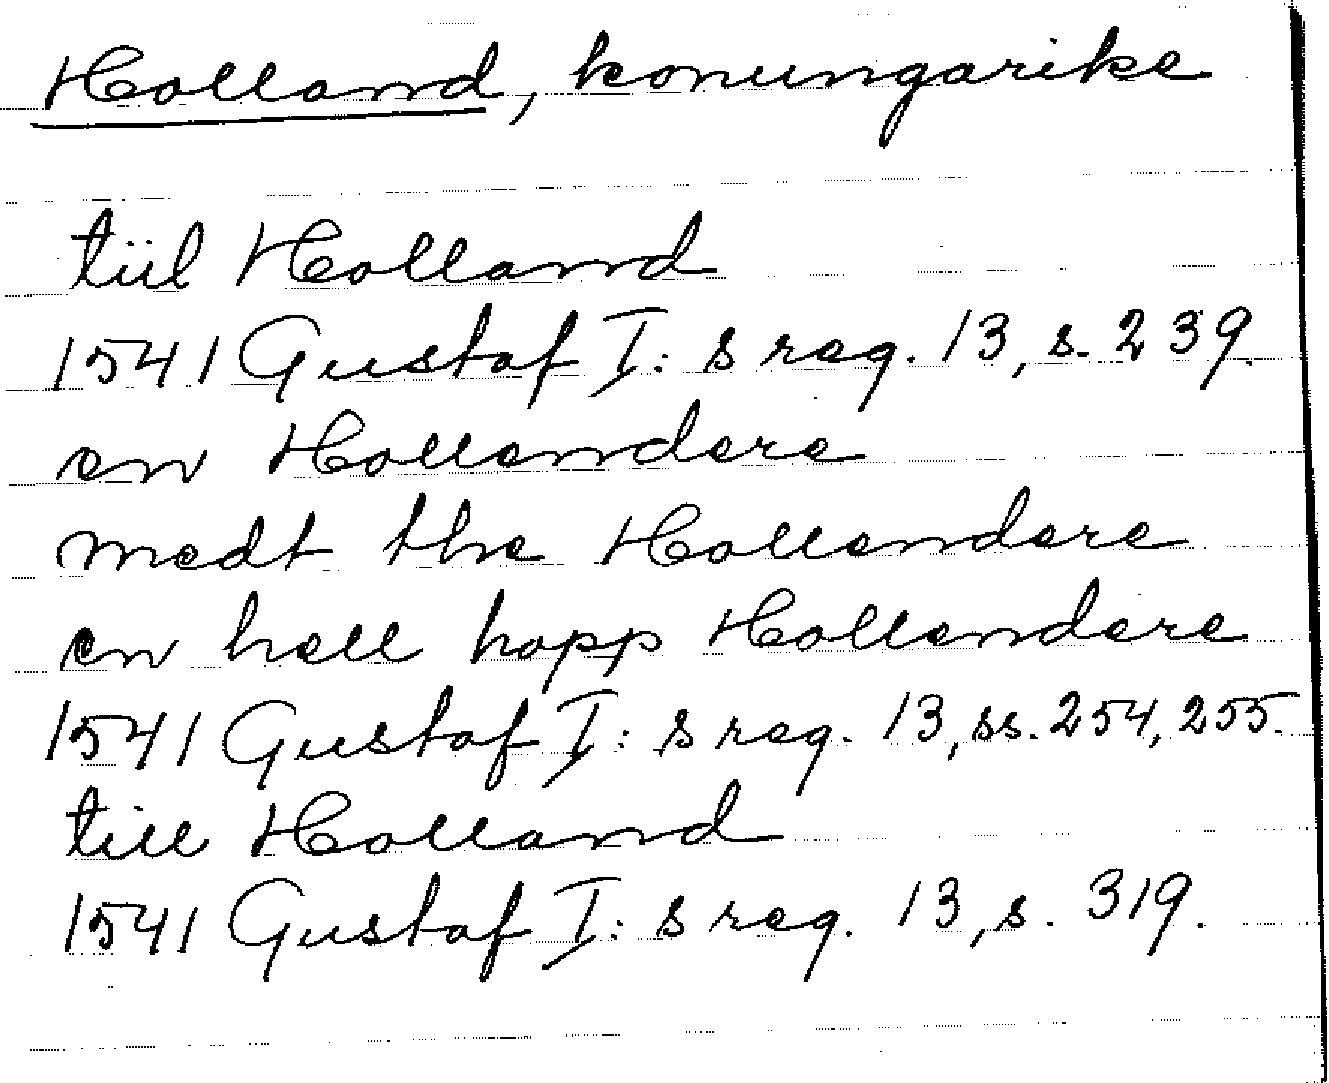 Holland, konungarike
tiil Holland
1541 Gustaf I:s reg. 13, s. 239.
en Hollendere
medt the Hollendere
en hell hopp Hollendere
1541 Gustaf I:s reg. 13, ss. 254, 255.
till Holland
1541 Gustaf I:s reg. 13, s. 319.